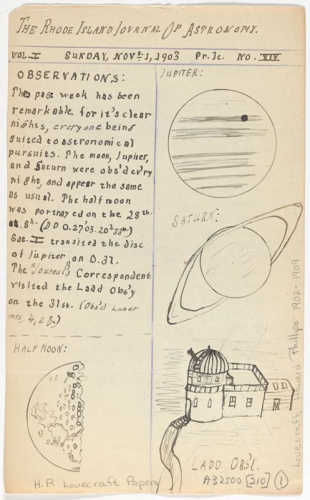 The Rhode Island Journal Of Astronomy.
Vol. I Sunday, Nov. 1, 1903 Pr. 1c. No. XIV
OBSERVATIONS:
This past week has been
remarkable for it's clear
nights, every one being
suited to astronomical
pursuits. The moon, Jupiter,
and Saturn were obs'd evry
night, and appear the same
as usual. The half moon
was portrayed on the 28th.
at 8h.
Sat. I transited the disc
of Jupiter on O. 31.
The "Journal's" Correspondent
visited the Ladd Obs'y
on the 31st. (Obs'd Lunar
HALF MOON:
H. P. Lovecraft Papers
JUPITER:
SATURN:
LADD OBS'Y.
A32500 [210] 1
Lovecraft, Howard Phillips 1902-1909